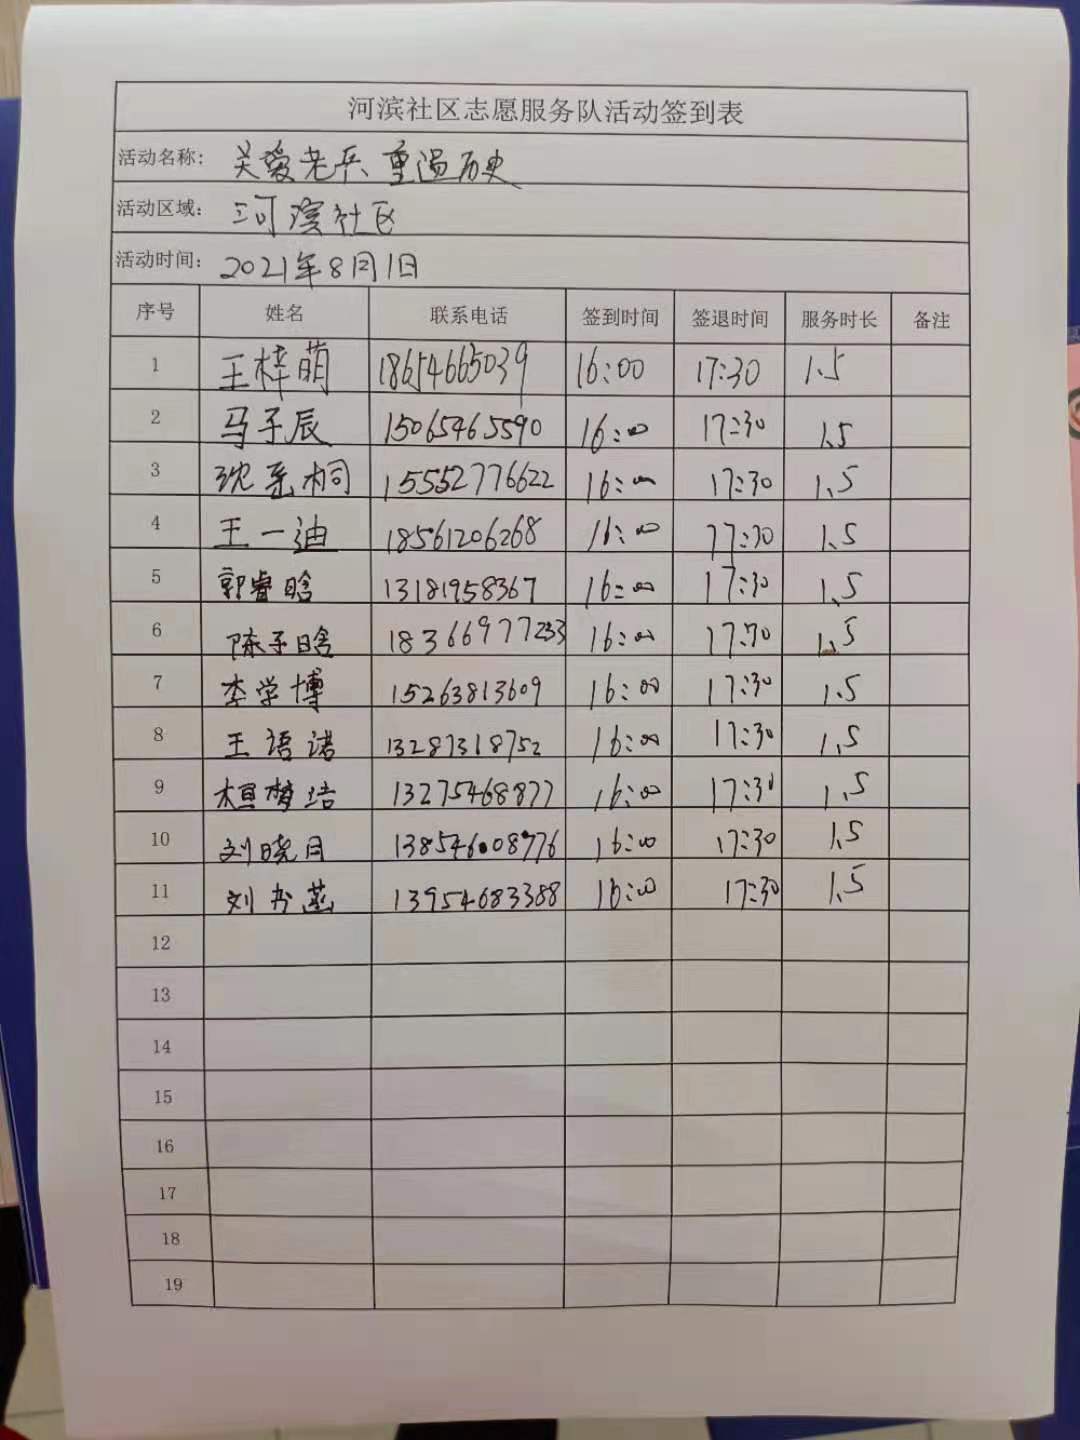 河滨社区志愿服务队活动签到表
活动名称: 关爱老兵、重温历史
活动区域: 河滨社区
活动时间: 2021年8月1日
序号 姓名 联系电话 签到时间 签退时间 服务时长 备注
1 王梓萌 18654665039 16:00 17:30 1.5
2 马子辰 15065465590 16:00 17:30 1.5
3 15552776622 16:00 17:30 1.5
4 王一迪 18561206268 16:00 17:30 1.5
5 郭睿晗 13181958367 16:00 17:30 1.5
6 陈子晗 18366977233 16:00 17:30 1.5
7 李学博 15263813609 16:00 17:30 1.5
8 王语诺 13287318752 16:00 17:30 1.5
9 13275468877 16:00 17:30 1.5
10 刘晓月 16:00 17:30 1.5
11 刘书菡 13954683388 16:00 17:30 1.5
12
13
14
15
16
17
18
19